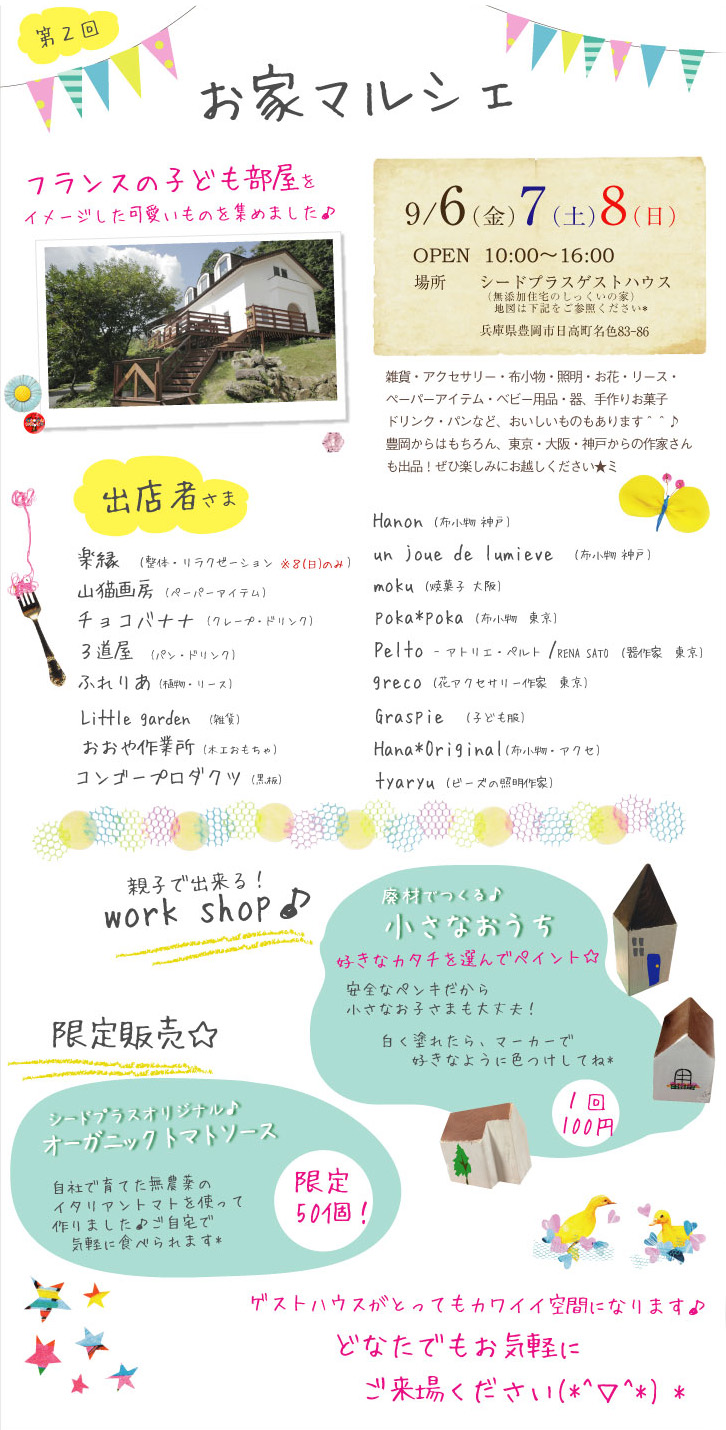 第2回
お家マルシェ
フランスの子ども部屋を
イメージした可愛いものを集めました♪
9/6(金)7(土)8(日)
OPEN 10:00〜16:00
場所 シードプラスゲストハウス
(無添加住宅のしっくいの家)
地図は下記をご参照ください*
兵庫県豊岡市日高町名色83-86
雑貨・アクセサリー・布小物・照明・お花・リース・
ペーパーアイテム・ベビー用品・器、手作りお菓子
ドリンク・パンなど、おいしいものもあります^^♪
豊岡からはもちろん、東京・大阪・神戸からの作家さん
も出品！ぜひ楽しみにお越しください★ミ
出店者さま
楽縁 (整体・リラクゼーション ※8(日)のみ)
山猫画房 (ペーパーアイテム)
チョコバナナ (クレープ・ドリンク)
3道屋 (パン・ドリンク)
ふれりあ(植物・リース)
Little garden (雑貨)
おおや作業所(木工おもちゃ)
コンゴープロダクツ(黒板)
Hanon (布小物 神戸)
un joue de lumieve (布小物 神戸)
moku (焼菓子 大阪)
poka*poka (布小物 東京)
Pelto - アトリエ・ペルト/RENA SATO (器作家 東京)
greco (花アクセサリー作家 東京)
Graspie (子ども服)
Hana*Original(布小物・アクセ)
tyaryu (ビーズの照明作家)
親子で出来る！
work shop♪
廃材でつくる♪
小さなおうち
好きなカタチを選んでペイント☆
安全なペンキだから
小さなお子さまも大丈夫！
白く塗れたら、マーカーで
好きなように色つけしてね*
1回
100円
限定販売☆
シードプラスオリジナル♪
オーガニックトマトソース
自社で育てた無農薬の
イタリアントマトを使って
作りました♪ご自宅で
気軽に食べられます*
限定
50個！
ゲストハウスがとってもカワイイ空間になります♪
どなたでもお気軽に
ご来場ください(*^▽^*) *